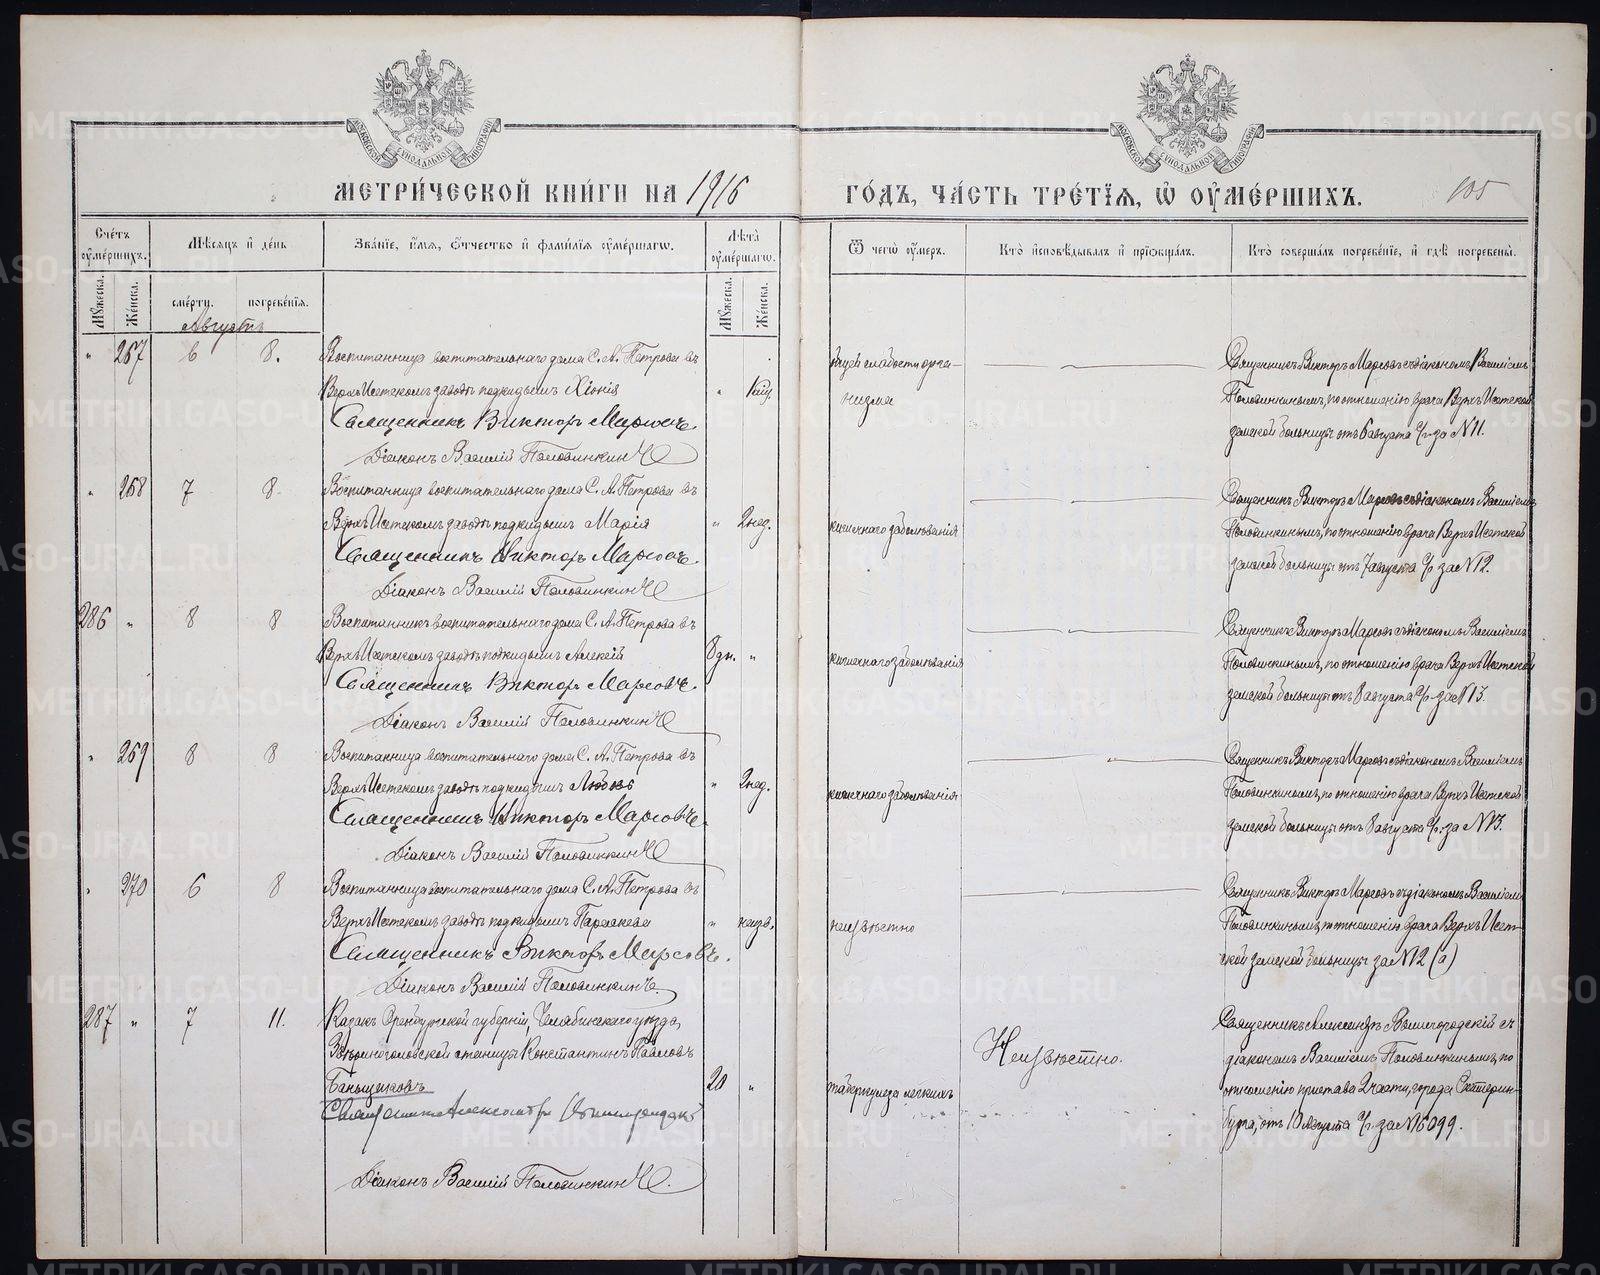 МОСКОВСКОЙ СѴНОДАЛЬНОЙ ТИПОГРАФІИ
МОСКОВСКОЙ СѴНОДАЛЬНОЙ ТИПОГРАФІИ
МЕТРИ́ЧЕСКОЙ КНИ́ГИ НА 1916
ГО́ДЪ, ЧА́СТЬ ТРЕ́ТЇѦ, Ѡ҆ ОУ҆МЕ́РШИХЪ.
105
Сче́тъ оу҆ме́ршихъ.
Мѣ́сѧцъ и҆ де́нь
Зва́нїе, и҆́мѧ, ѻ҆́тчество и҆ фами́лїѧ оу҆ме́ршагѡ.
Лѣ́та оу҆ме́ршагѡ.
Ѿ чегѡ̀ оу҆́меръ.
Кто̀ и҆сповѣ́дывалъ и҆ прїѻбща́лъ.
Кто̀ соверша́лъ погребе́нїе, и҆ гдѣ̀ погребены̀.
Мꙋ́жеска.
Же́нска.
сме́рти.
погребе́нїѧ.
Мꙋ́жеска.
Же́нска.
Августъ
" 267 6 8. Воспитанница воспитательнаго дома С. А. Петрова въ
Верхъ Исетскомъ заводѣ подкидышъ Хіонія "
Священникъ Викторъ Марсовъ.
Діаконъ Василій Половинкинъ
общей слабости орга-
низма
Священникъ Викторъ Марсовъ съ діакономъ Василіемъ
Половинкинымъ, по отношенію врача Верхъ Исетской
земской больницы отъ 6 августа с/г за № 11.
" 268 7 8 Воспитанница воспитательнаго дома С. А. Петрова въ
Верхъ Исетскомъ заводѣ подкидышъ Марія " 2 нед.
Священникъ Викторъ Марсовъ.
Діаконъ Василій Половинкинъ
кишечнаго заболѣванія
Священникъ Викторъ Марсовъ съ діакономъ Василіемъ
Половинкинымъ, по отношенію врача Верхъ Исетской
земской больницы отъ 7 августа с/г за № 12.
286 " 8 8 Воспитанникъ воспитательнаго дома С. А. Петрова въ
Верхъ Исетскомъ заводѣ подкидышъ Алексій 8 дн. "
Священникъ Викторъ Марсовъ.
Діаконъ Василій Половинкинъ
кишечнаго заболѣванія
Священникъ Викторъ Марсовъ съ діакономъ Василіемъ
Половинкинымъ, по отношенію врача Верхъ Исетской
земской больницы отъ 8 августа с/г за № 13.
" 269 8 8 Воспитанница воспитательнаго дома С. А. Петрова въ
Верхъ Исетскомъ заводѣ подкидышъ Любовь " 2 нед.
Священникъ Викторъ Марсовъ.
Діаконъ Василій Половинкинъ
кишечнаго заболѣванія
Священникъ Викторъ Марсовъ съ діакономъ Василіемъ
Половинкинымъ, по отношенію врача Верхъ Исетской
земской больницы отъ 8 августа с/г за № 13.
" 270 6 8 Воспитанница воспитательнаго дома С. А. Петрова въ
Верхъ Исетскомъ заводѣ подкидышъ Параскева " неизв.
Священникъ Викторъ Марсовъ.
Діаконъ Василій Половинкинъ.
неизвѣстно
Священникъ Викторъ Марсовъ съ діакономъ Василіемъ
Половинкинымъ, по отношенію врача Верхъ Исет-
ской земской больницы за № 12 (а)
287 " 7 11. Казакъ Оренбургской губерніи, Челябинскаго уѣзда,
Звѣриноголовской станицы Константинъ Павловъ
Банщиковъ 20 "
Священникъ Александръ
Діаконъ Василій Половинкинъ.
туберкулеза легкихъ
Неизвѣстно.
Священникъ Александръ Вышегородскій съ
діакономъ Василіемъ Половинкинымъ, по
отношенію пристава 2 части, города Екатерин-
бурга, отъ 10 Августа с/г за № 6099.